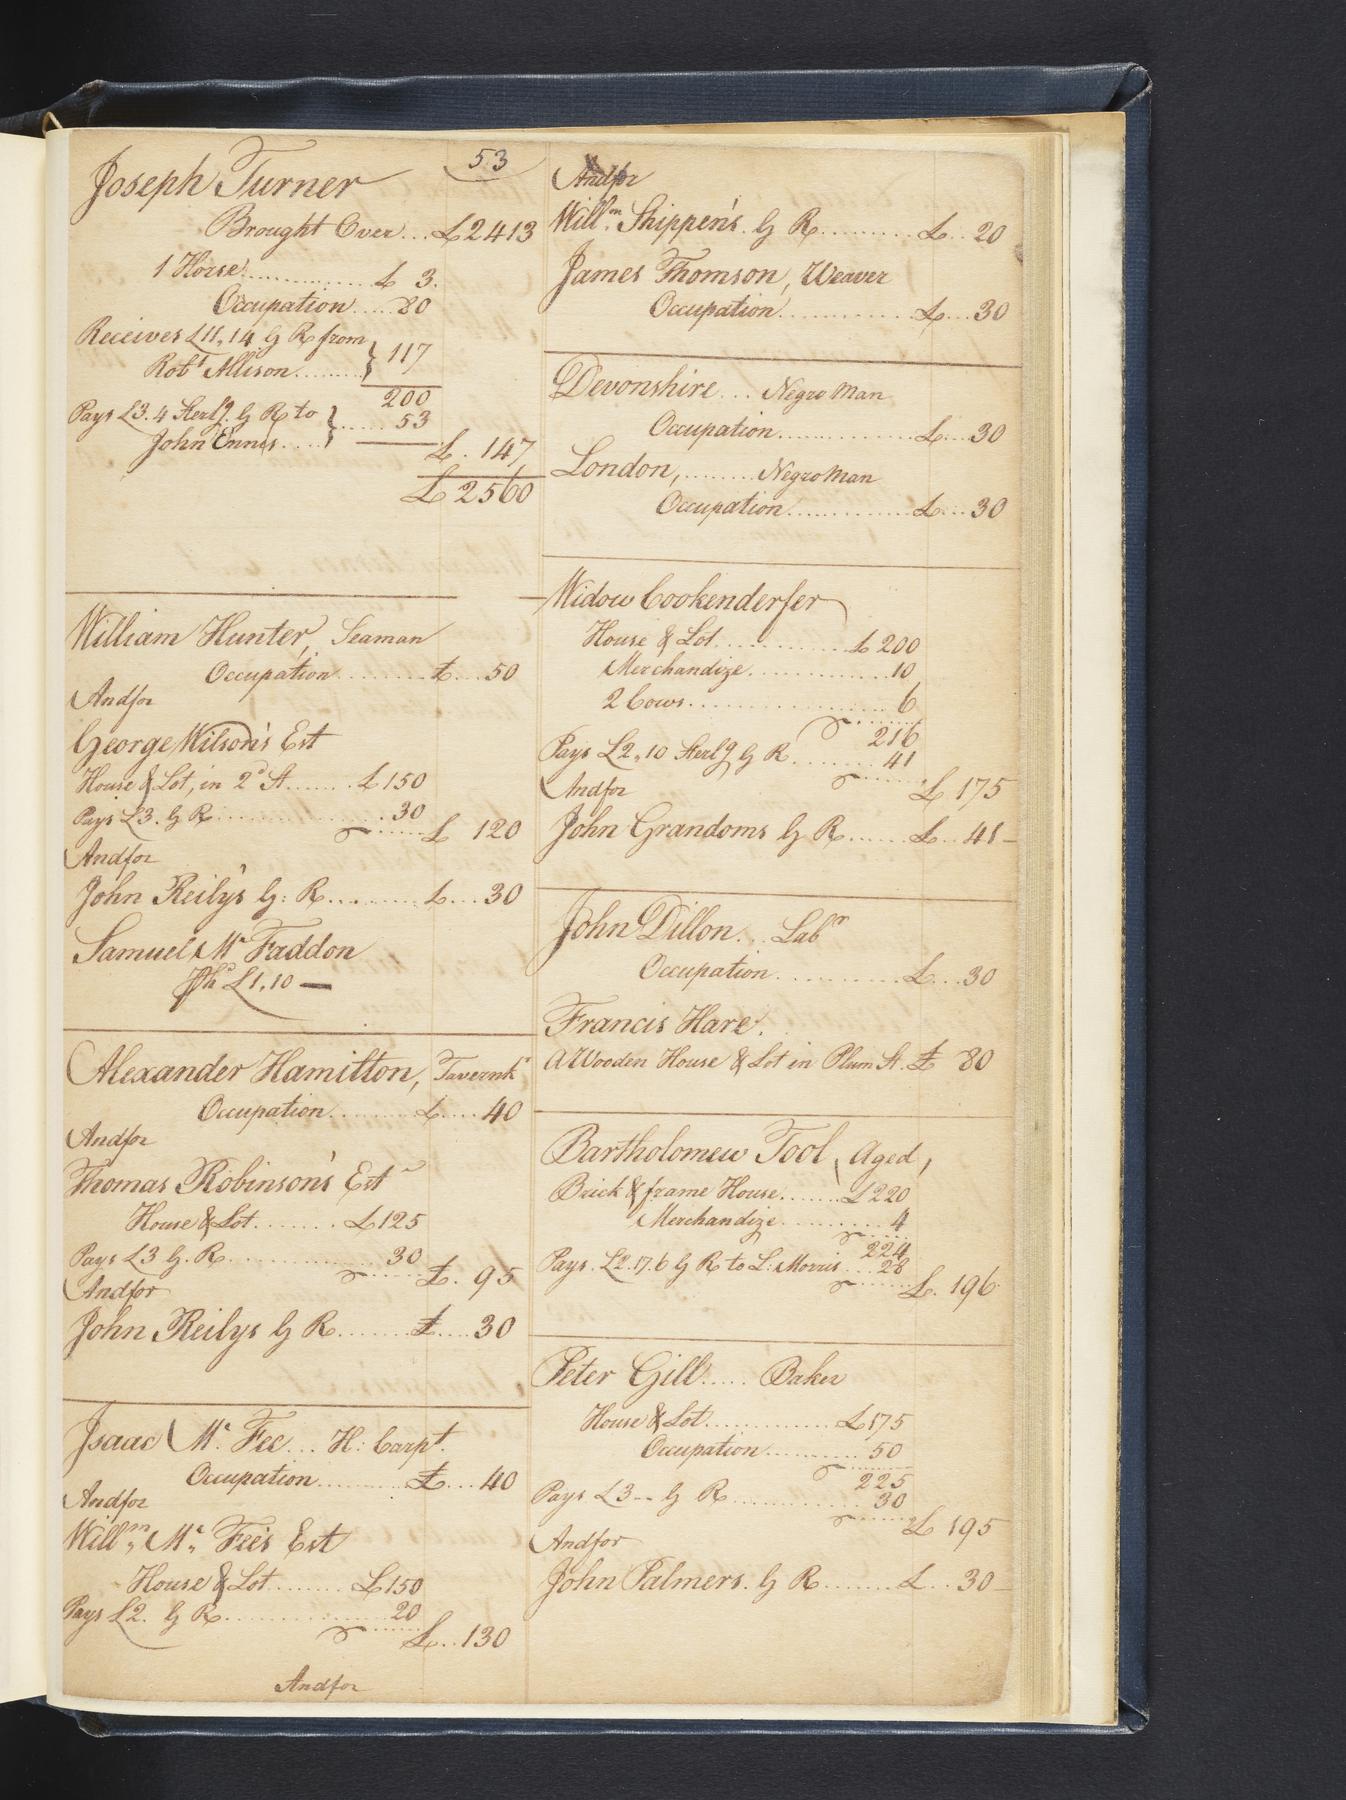 53
Joseph Turner
Brought Over... £2413
1 Horse............ £ 3.
Occupation.... 80
Receives £11.14 G R from
Robt. Allison........} 117
200
Pays £3.4 Sterlg. G R to
John Ennis....} ..... 53
£. 147
£ 2560
William Hunter, Seaman
Occupation......... £... 50
Andfor
George Wilson's Est
House & Lot, in 2d St...... £150
Pays £3. G R............... 30
£ 120
Andfor
John Reily's G: R......... £... 30
Samuel Mc. Faddon
Ph £1.10 —
Alexander Hamilton, Tavernkr
Occupation......... £.... 40
Andfor
Thomas Robinson's Est
House & Lot........ £125
Pays £3 G. R............. 30
£. 95
Andfor
John Reilys G R....... £.... 30
Isaac Mc. Fee... H: Carpt.
Occupation......... £... 40
Andfor
Willm. Mc. Fee's Est
House & Lot........ £150
Pays £2. G R............... 20
£.. 130
Andfor
Andfor
Willm. Shippen's. G R......... £.. 20
James Thomson, Weaver
Occupation............ £... 30
Devonshire... Negro Man
Occupation............ £... 30
London,....... Negro Man
Occupation............ £... 30
Widow Cookenderfer
House & Lot............ £200
Merchandize............. 10
2 Cows.................. 6
216
Pays £2.10 Sterlg G R........ 41
£ 175
Andfor
John Grandoms G R...... £.. 41-
John Dillon... Labr
Occupation........... £... 30
Francis Hare.
A Wooden House & Lot in Plum St. £ 80
Bartholomew Tool, Aged,
Brick & frame House...... £220
Merchandize......... 4
224
Pays. £2.17.6 G R to L. Morris... 28
£. 196
Peter Gill..... Baker
House & Lot............ £175
Occupation.......... 50
225
Pays £3-- G R............ 30
£ 195
Andfor
John Palmers. G R....... £... 30-